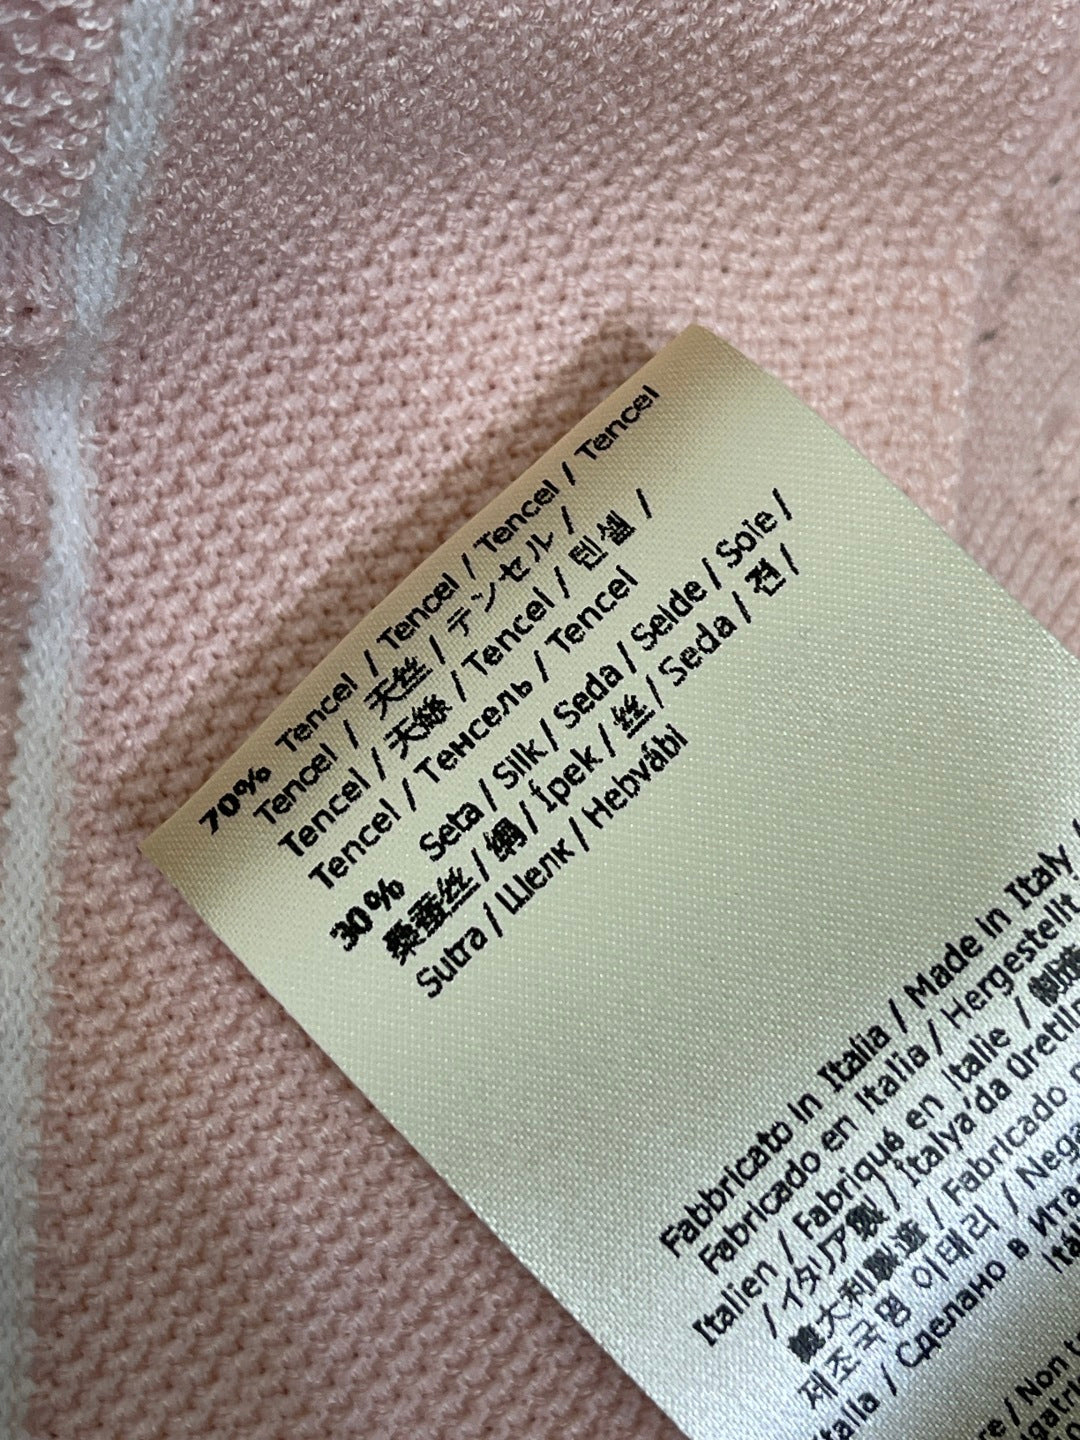 70% Tencel / Tencel / Tencel / Tencel
Tencel / 天丝 / テンセル /
Tencel / 天絲 / Tencel / 텐셀 /
Tencel / Тенсель / Tencel
30% Seta / Silk / Seda / Seide / Soie /
桑蚕丝 / 絹 / İpek / 丝 / Seda / 견 /
Sutra / Шелк / Hebvábí
Fabbricato in Italia / Made in Italy /
Fabricado en Italia / Hergestellt
Italien / Fabriqué en Italie / 制造
/ イタリア製 / İtalya'da
大利製造 / Fabricado
제조국명 이태리 /
/ Сделано в
/ Non